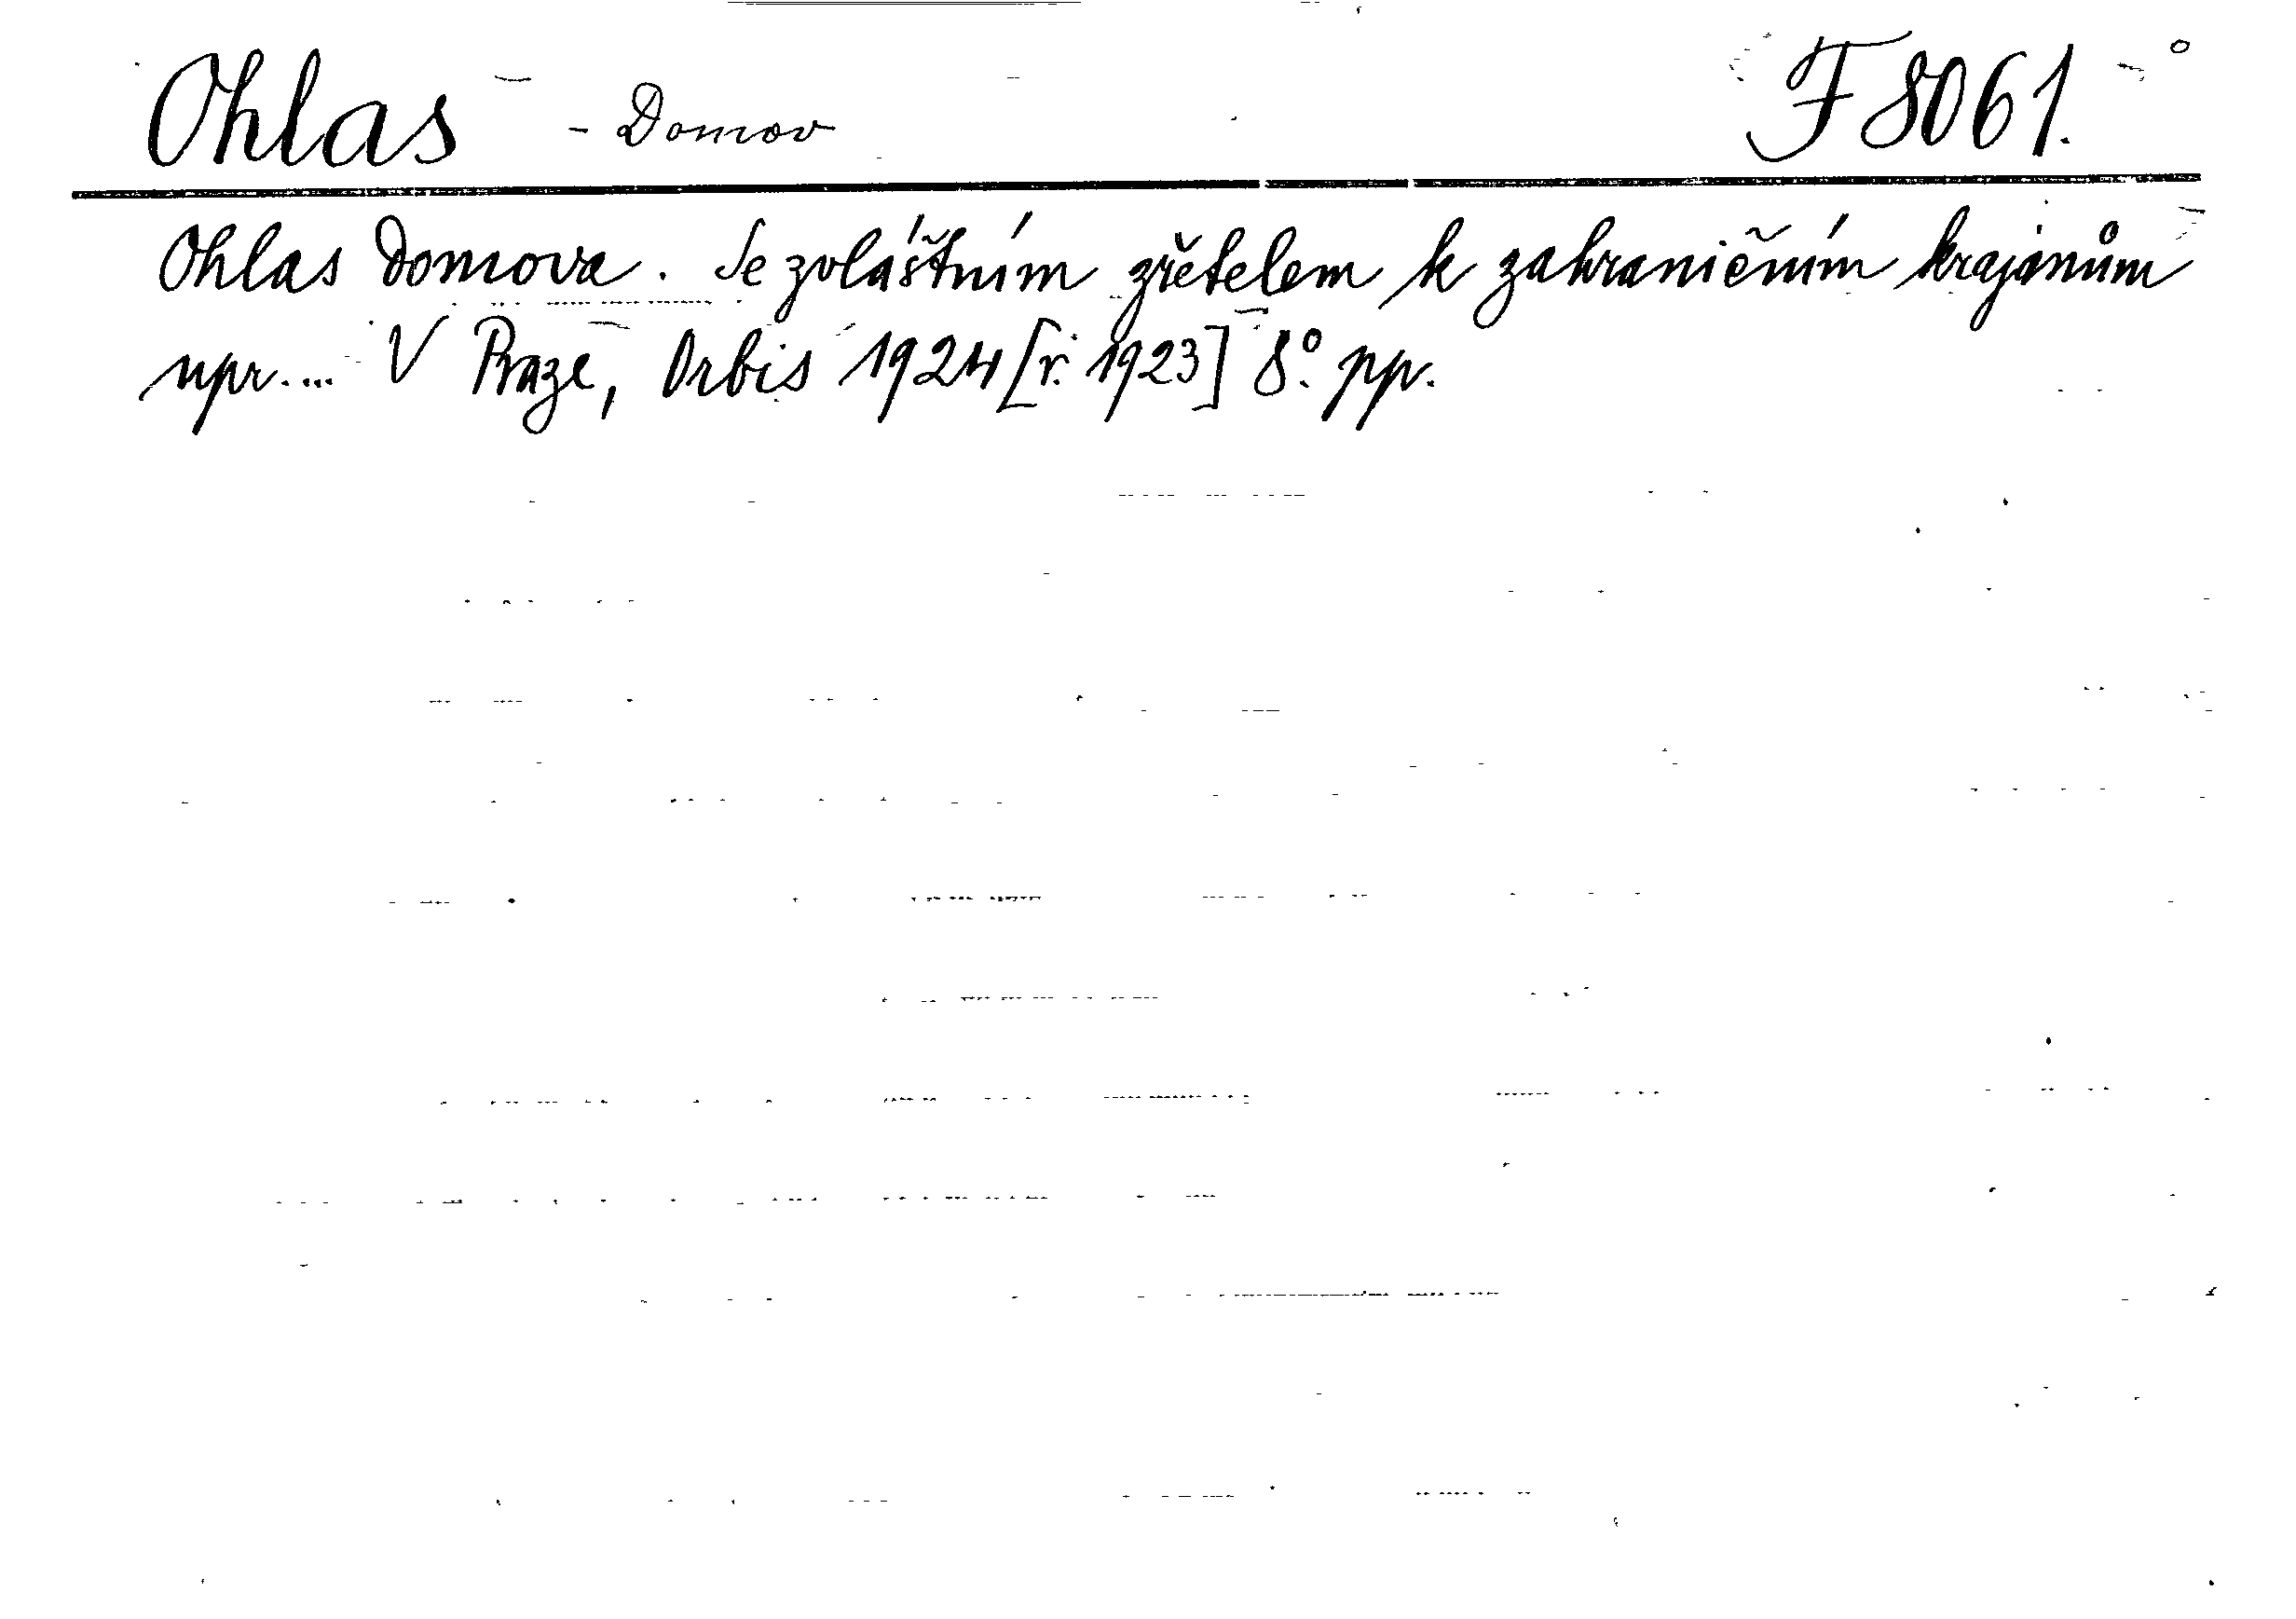 Ohlas - Domov F 8061.
Ohlas domova. Se zvláštním zřetelem k zahraničním krajanům
upr.... V Praze, Orbis 1924 [r. 1923] 8°. pp.